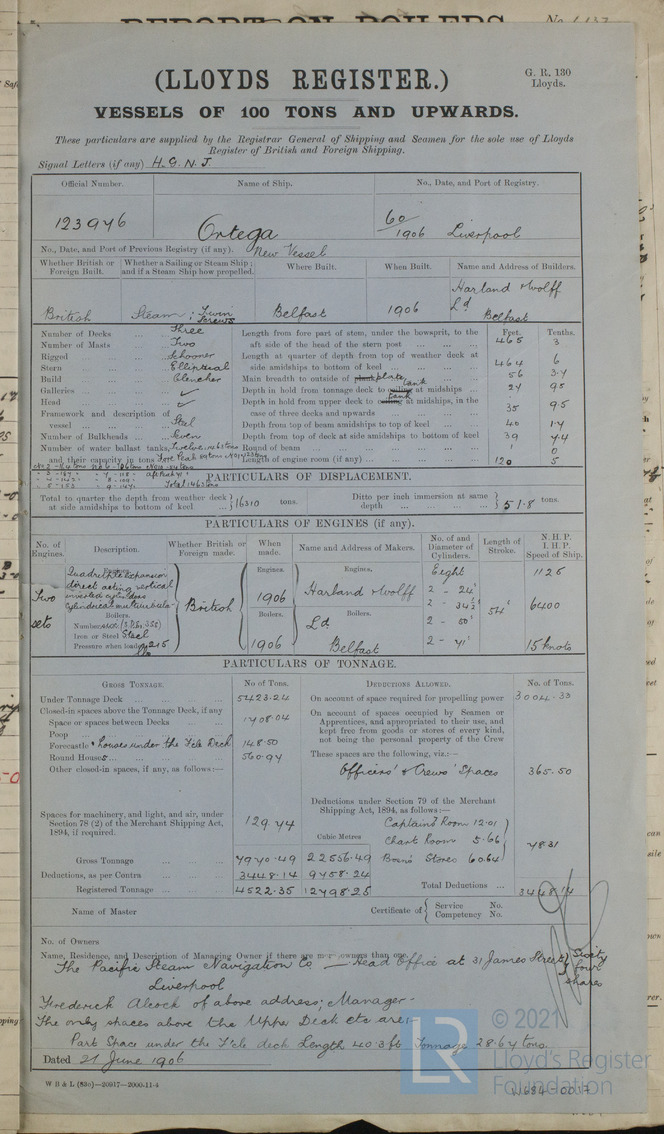 REPORT ON BOILERS. No.
(LLOYDS REGISTER.)
G. R. 130
Lloyds.
VESSELS OF 100 TONS AND UPWARDS.
These particulars are supplied by the Registrar General of Shipping and Seamen for the sole use of Lloyds
Register of British and Foreign Shipping.
Signal Letters (if any) H.G.N.J.
Official Number. Name of Ship. No., Date, and Port of Registry.
123946 Ortega 60/1906 Liverpool
No., Date, and Port of Previous Registry (if any). New Vessel
Whether British or Foreign Built. Whether a Sailing or Steam Ship; and if a Steam Ship how propelled. Where Built. When Built. Name and Address of Builders.
British Steam; Twin Screws Belfast 1906 Harland & Wolff Ld Belfast
Number of Decks Three
Number of Masts Two
Rigged Schooner
Stern Elliptical
Build Clencher
Galleries ✓
Head ✓
Framework and description of
vessel Steel
Number of Bulkheads Seven
Number of water ballast tanks,
and their capacity in tons
Feet. Tenths.
Length from fore part of stem, under the bowsprit, to the
aft side of the head of the stern post 465 3
Length at quarter of depth from top of weather deck at
side amidships to bottom of keel 464 6
Main breadth to outside of plate 56 3.4
Depth in hold from tonnage deck to tank at midships 24 95
Depth in hold from upper deck to tank at midships, in the
case of three decks and upwards 35 95
Depth from top of beam amidships to top of keel 40 14
Depth from top of deck at side amidships to bottom of keel 39 44
Round of beam 1 0
Length of engine room (if any) 120 5
PARTICULARS OF DISPLACEMENT.
Total to quarter the depth from weather deck
at side amidships to bottom of keel 16310 tons.
Ditto per inch immersion at same
depth 51.8 tons.
PARTICULARS OF ENGINES (if any).
No. of Engines. Description. Whether British or Foreign made. When made. Name and Address of Makers. No. of and Diameter of Cylinders. Length of Stroke. N.H.P. I.H.P. Speed of Ship.
Two sets
Engines.
Quadruple Expansion
direct acting vertical
inverted cylinders
Cylindrical multitubular
Boilers.
Number
Iron or Steel Steel
Pressure when loaded 215 lbs
British
Engines. 1906
Boilers. 1906
Engines. Harland & Wolff
Boilers. Ld
Belfast
Eight
2 - 24"
2 - 34½
2 - 50"
2 - 71"
54"
1126
6400
15 knots
PARTICULARS OF TONNAGE.
GROSS TONNAGE. No of Tons.
Under Tonnage Deck 5423.24
Closed-in spaces above the Tonnage Deck, if any
Space or spaces between Decks 1708.04
Poop
Forecastle & houses under the F'cle Deck 148.50
Round Houses 560.97
Other closed-in spaces, if any, as follows:—
Spaces for machinery, and light, and air, under
Section 78 (2) of the Merchant Shipping Act,
1894, if required. 129.74
Cubic Metres
Gross Tonnage 7970.49 22556.49
Deductions, as per Contra 3448.14 9758.24
Registered Tonnage 4522.35 12798.25
DEDUCTIONS ALLOWED. No. of Tons.
On account of space required for propelling power 3004.33
On account of spaces occupied by Seamen or
Apprentices, and appropriated to their use, and
kept free from goods or stores of every kind,
not being the personal property of the Crew
These spaces are the following, viz.:—
Officers' & Crews' Spaces 365.50
Deductions under Section 79 of the Merchant
Shipping Act, 1894, as follows:—
Captain's Room 12.01
Chart Room 5.66
Bosn's Stores 60.64
78.31
Total Deductions 3448.14
Name of Master
Certificate of { Service No.
Competency No.
No. of Owners
Name, Residence, and Description of Managing Owner if there are more owners than one.
The Pacific Steam Navigation Co — Head Office at 31 James Street, Sixty four shares
Liverpool
Frederick Alcock of above address; Manager.
The only spaces above the Upper Deck etc are:-
Part Space under the F'cle deck Length 40.3 ft Tonnage 28.64 tons.
Dated 21 June 1906
W B & L (830)—20917—2000-11-4
LR
© 2021
Lloyd's Register
Foundation
W684-0017